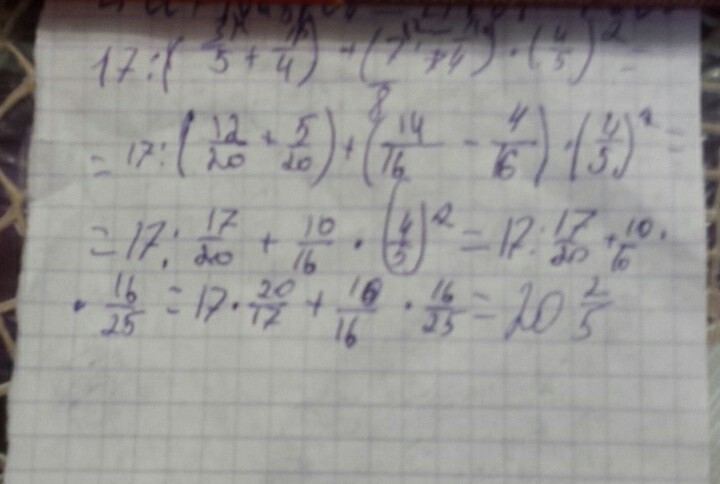 17:(3/5 + 1/4) + (7/8 - 1/4) · (4/5)^2 =
= 17:(12/20 + 5/20) + (14/16 - 4/16) · (4/5)^2 =
= 17: 17/20 + 10/16 · (4/5)^2 = 17: 17/20 + 10/16 ·
· 16/25 = 17 · 20/17 + 10/16 · 16/25 = 20 2/5